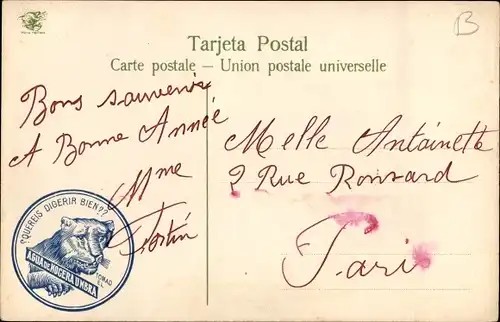 B
Tarjeta Postal
Carte postale — Union postale universelle
Bons souvenirs
A Bonne Année
Mme
Fortin
Melle Antoinette
2 Rue Ronsard
Paris
¿¿QUEREIS DIGERIR BIEN??
AGUA DE NOCERA UMBRA
TOMAD EL